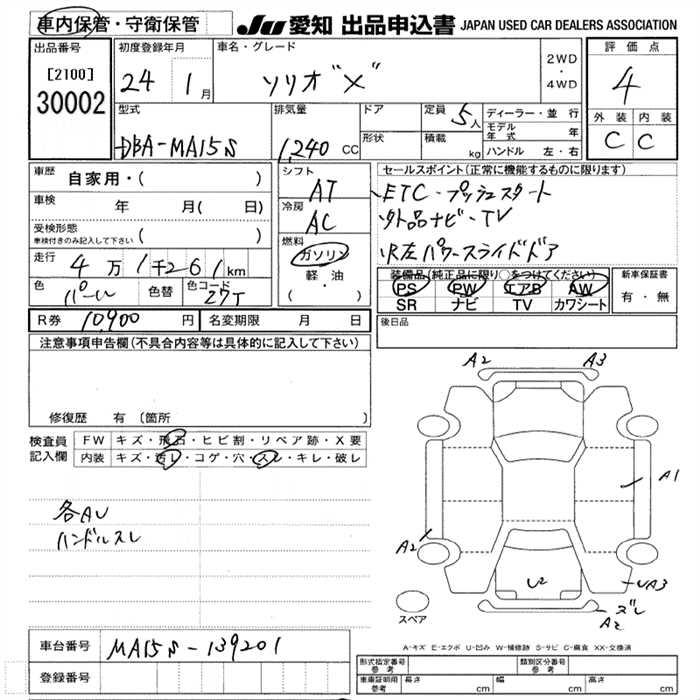 車内保管・守衛保管
JU 愛知 出品申込書 JAPAN USED CAR DEALERS ASSOCIATION
出品番号
[2100]
30002
初度登録年月
24 1月
車名・グレード
ソリオ"X"
2WD
・
4WD
評価点
4
外装 内装
C C
型式
DBA-MA15S
排気量
1,240 CC
ドア
形状
定員 5人
積載 kg
ディーラー・並行
モデル年式 年
ハンドル 左・右
車歴 自家用・( )
車検 年 月( 日)
受検形態
車検付きのみ記入して下さい ( )
走行 4万1千261km
色 パール 色替 色コード 27T
シフト
AT
冷房
AC
燃料
ガソリン
軽・油
( )
セールスポイント(正常に機能するものに限ります)
ETC・プッシュスタート
外品ナビ・TV
R左パワースライドドア
装備品(純正品に限り○をつけてください)
PS PW エアB AW
SR ナビ TV カワシート
新車保証書
有・無
R券 10,900 円 名変期限 月 日
後日品
注意事項申告欄(不具合内容等は具体的に記入して下さい)
修復歴 有 〔箇所 〕
検査員記入欄
FW キズ・飛石・ヒビ割・リペア跡・X要
内装 キズ・汚レ・コゲ・穴・スレ・キレ・破レ
各AU
ハンドルスレ
A2 A3
A1
A2
U2
UA3
ズレ
A2
スペア
A-キズ E-エクボ U-凹み W-補修跡 S-サビ C-腐食 XX-交換済
車台番号 MA15S-139201
登録番号
形式指定番号 参考 類別区分番号 参考
車庫証明用 参考 長さ cm 幅 cm 高さ cm